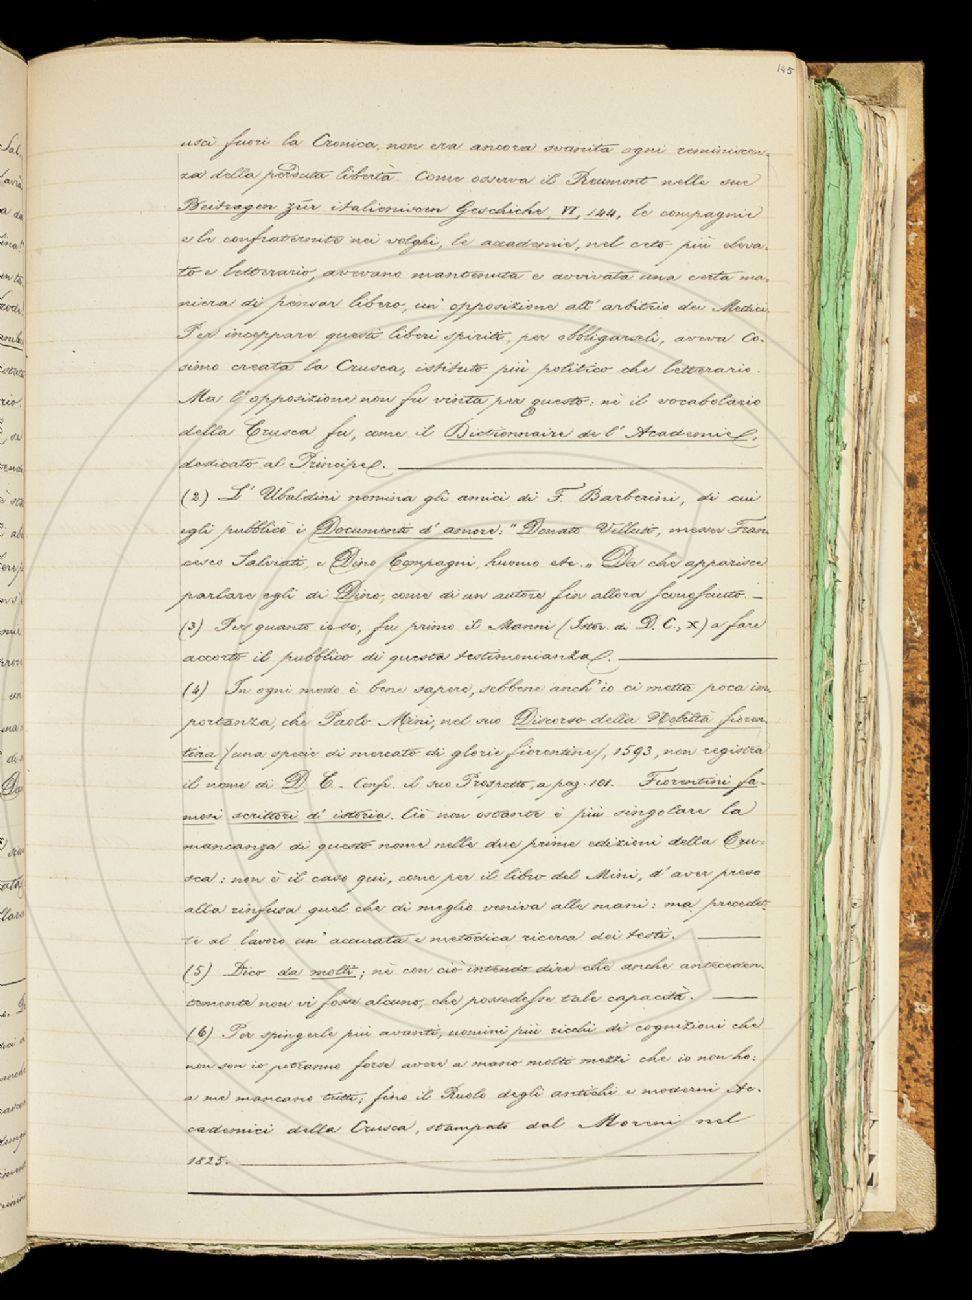 145
uscì fuori la Cronica, non era ancora svanita ogni reminiscen-
za della perduta libertà. Come osserva il Reumont nelle sue
Beitragen zür italieniscen Geschiche, VI, 144, le compagnie
e le confraternite nei volghi, le accademie, nel ceto più eleva-
to e letterario, avevano mantenuta e avvivata una certa ma-
niera di pensar libero, un' opposizione all' arbitrio dei Medici.
Per inceppare questi liberi spiriti, per obbligarseli, aveva Co-
simo creata la Crusca, istituto più politico che letterario.
Ma l' opposizione non fu vinta per questo: nè il vocabolario
della Crusca fu, come il Dictionnaire de l' Academie,
dedicato al Principe.
(2) L' Ubaldini nomina gli amici di F. Barberini, di cui
egli pubblicò i Documenti d' amore: "Donato Velluti, messer Fran-
cesco Salviati, e Dino Compagni, huomo etc." Da che apparisce
parlare egli di Dino, come di un autore fin allora sconosciuto. —
(3) Per quanto io so, fu primo il Manni (Istor. di D. C., X) a fare
accorto il pubblico di questa testimonianza.
(4) In ogni modo è bene sapere, sebbene anch' io ci metta poca im-
portanza, che Paolo Mini, nel suo Discorso della Nobiltà fioren-
tina (una specie di mercato di glorie fiorentine), 1593, non registra
il nome di D. C. Confr. il suo Prospetto, a pag. 101. Fiorentini fa-
mosi scrittori d' istoria. Ciò non ostante è più singolare la
mancanza di questo nome nelle due prime edizioni della Cru-
sca: non è il caso qui, come per il libro del Mini, d' aver preso
alla rinfusa quel che di meglio veniva alle mani: ma precedet-
te al lavoro un' accurata e metodica ricerca dei testi.
(5) Dico da molti; nè con ciò intendo dire che anche anteceden-
temente non vi fosse alcuno, che possedesse tale capacità.
(6) Per spingerle più avanti, uomini più ricchi di cognizioni che
non son io potranno forse avere a mano molti mezzi che io non ho:
a me mancano tutti; fino il Ruolo degli antichi e moderni Ac-
cademici della Crusca, stampato dal Moreni nel
1825.